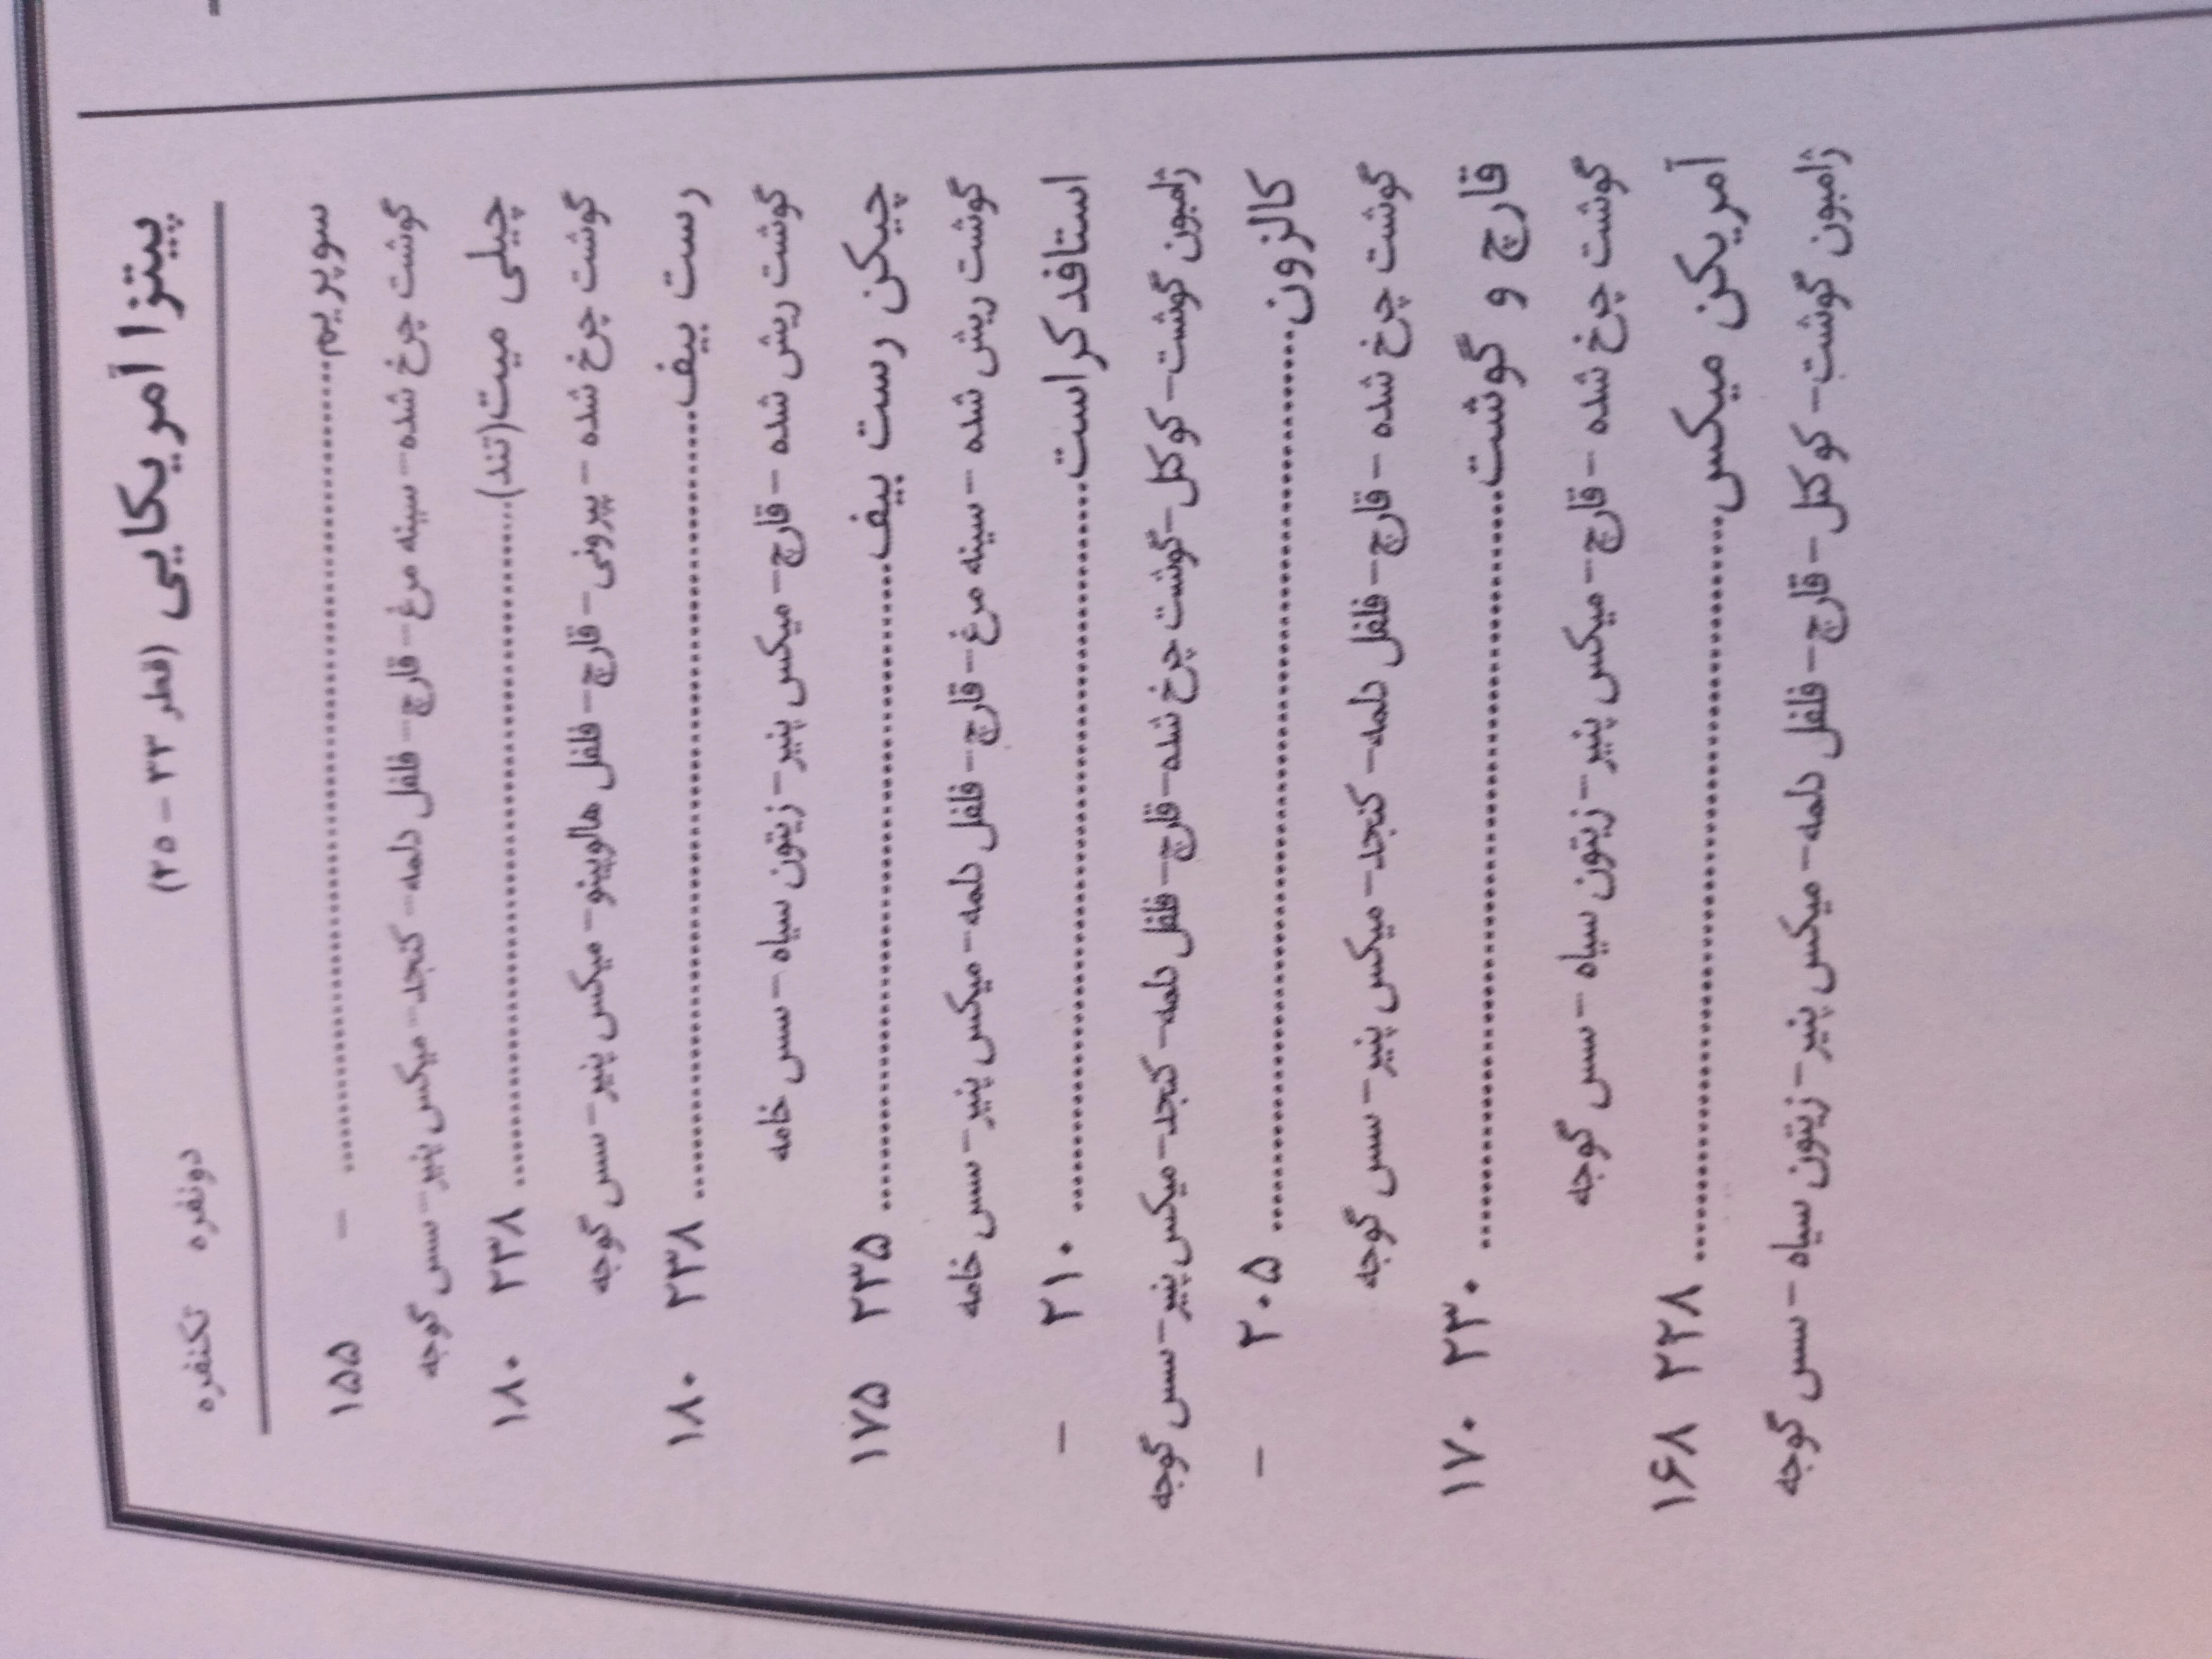 پیتزا آمریکایی (قطر ۳۳ - ۲۵) دونفره تکنفره
سوپریم.......... - ۱۵۵
گوشت چرخ شده- سینه مرغ- قارچ- فلفل دلمه- کنجد- میکس پنیر- سس گوجه
چیلی میت(تند).......... ۲۳۸ ۱۸۰
گوشت چرخ شده - پپرونی- قارچ- فلفل هالوپینو- میکس پنیر- سس گوجه
رست بیف.......... ۲۳۸ ۱۸۰
گوشت ریش شده - قارچ- میکس پنیر- زیتون سیاه - سس خامه
چیکن رست بیف.......... ۲۳۵ ۱۷۵
گوشت ریش شده - سینه مرغ- قارچ- فلفل دلمه- میکس پنیر- سس خامه
استافدکراست.......... ۲۱۰ -
ژامبون گوشت- کوکتل-گوشت چرخ شده-قارچ- فلفل دلمه- کنجد-میکس پنیر-سس گوجه
کالزون.......... ۲۰۵ -
گوشت چرخ شده - قارچ- فلفل دلمه- کنجد- میکس پنیر- سس گوجه
قارچ و گوشت.......... ۲۳۰ ۱۷۰
گوشت چرخ شده - قارچ- میکس پنیر- زیتون سیاه - سس گوجه
آمریکن میکس.......... ۲۲۸ ۱۶۸
ژامبون گوشت- کوکتل - قارچ- فلفل دلمه- میکس پنیر- زیتون سیاه - سس گوجه